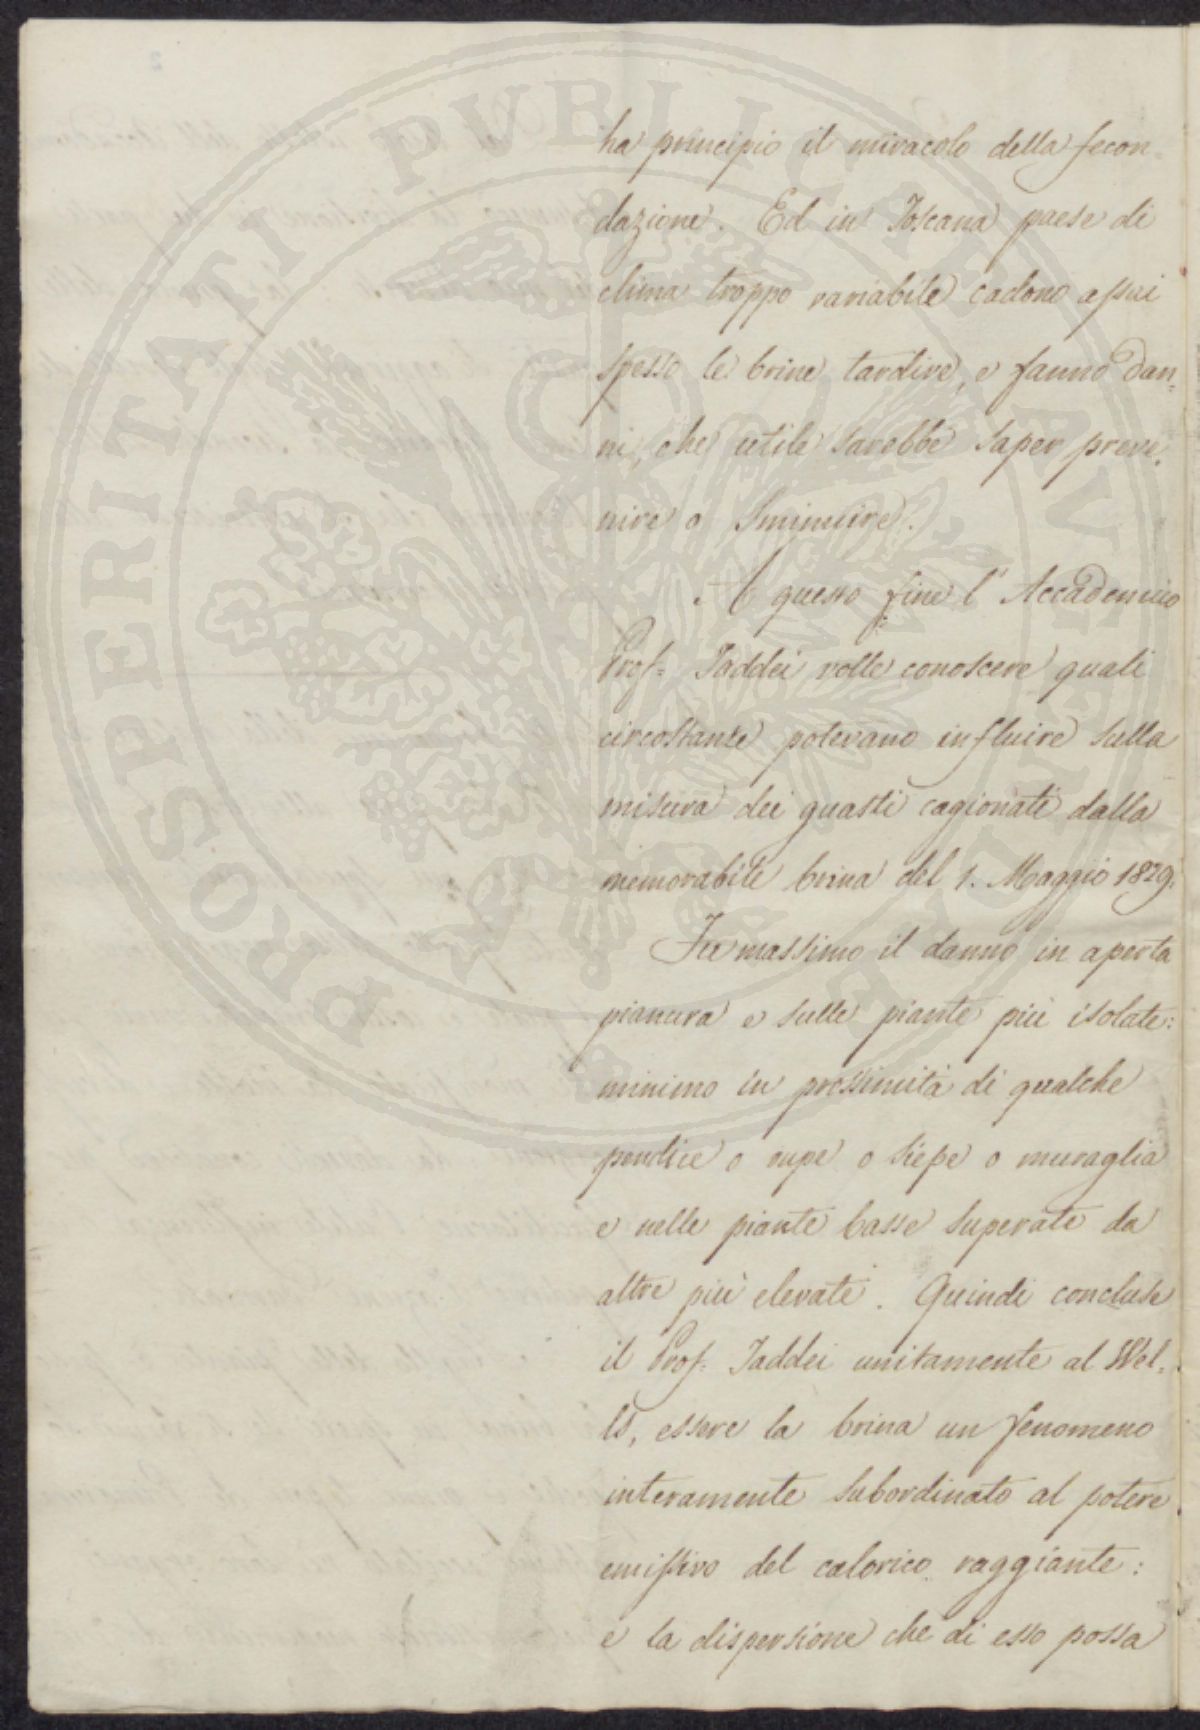 ha principio il miracolo della fecon-
dazione. Ed in Toscana paese di
clima troppo variabile cadono assai
spesso le brine tardive, e fanno dan-
ni, che utile sarebbe saper preve-
nire o sminuire.
A questo fine l'Accademico
Prof. Taddei volle conoscere quali
circostanze potevano influire sulla
misura dei guasti cagionati dalla
memorabile brina del 1. Maggio 1829.
Fu massimo il danno in aperta
pianura e sulle piante più isolate:
minimo in prossimità di qualche
pendice o rupe o siepe o muraglia
e nelle piante basse superate da
altre più elevate. Quindi concluse
il Prof. Taddei unitamente al Wel-
ls, essere la brina un fenomeno
interamente subordinato al potere
emissivo del calorico raggiante:
e la dispersione che di esso possa
PROSPERITATI PUBLICAE AUGENDAE